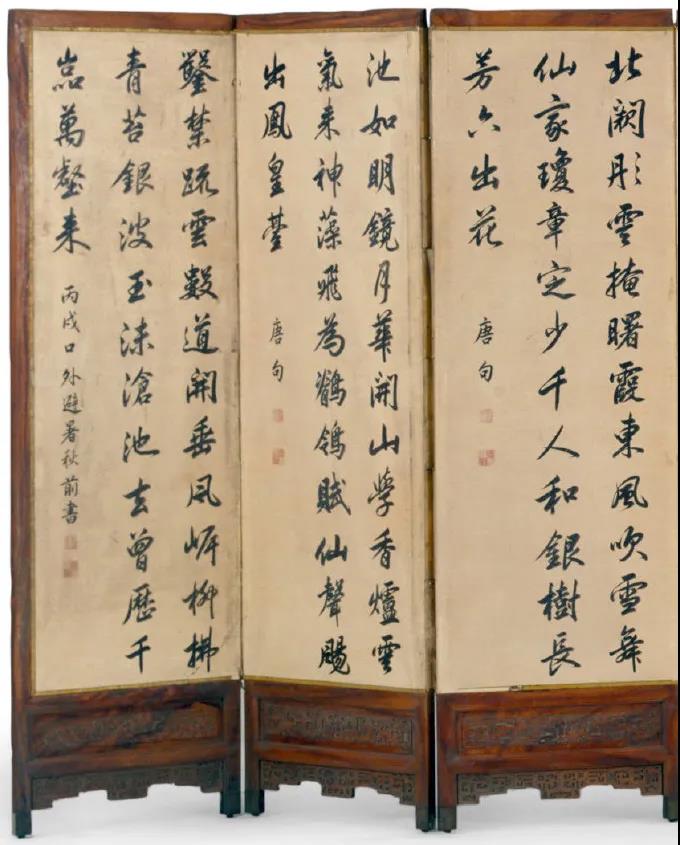 北闕彤雲掩曙霞東風吹雪舞
仙家瓊章定少千人和銀樹長
芳六出花
唐句
池如明鏡月華開山學香爐雲
氣来神藻飛為鶺鴒賦仙聲颺
出鳳皇臺
唐句
鑿禁疏雲數道開垂風岸柳拂
青苔銀波玉沫滄池去曾歷千
嵒萬壑来
丙戌口外避暑秋前書